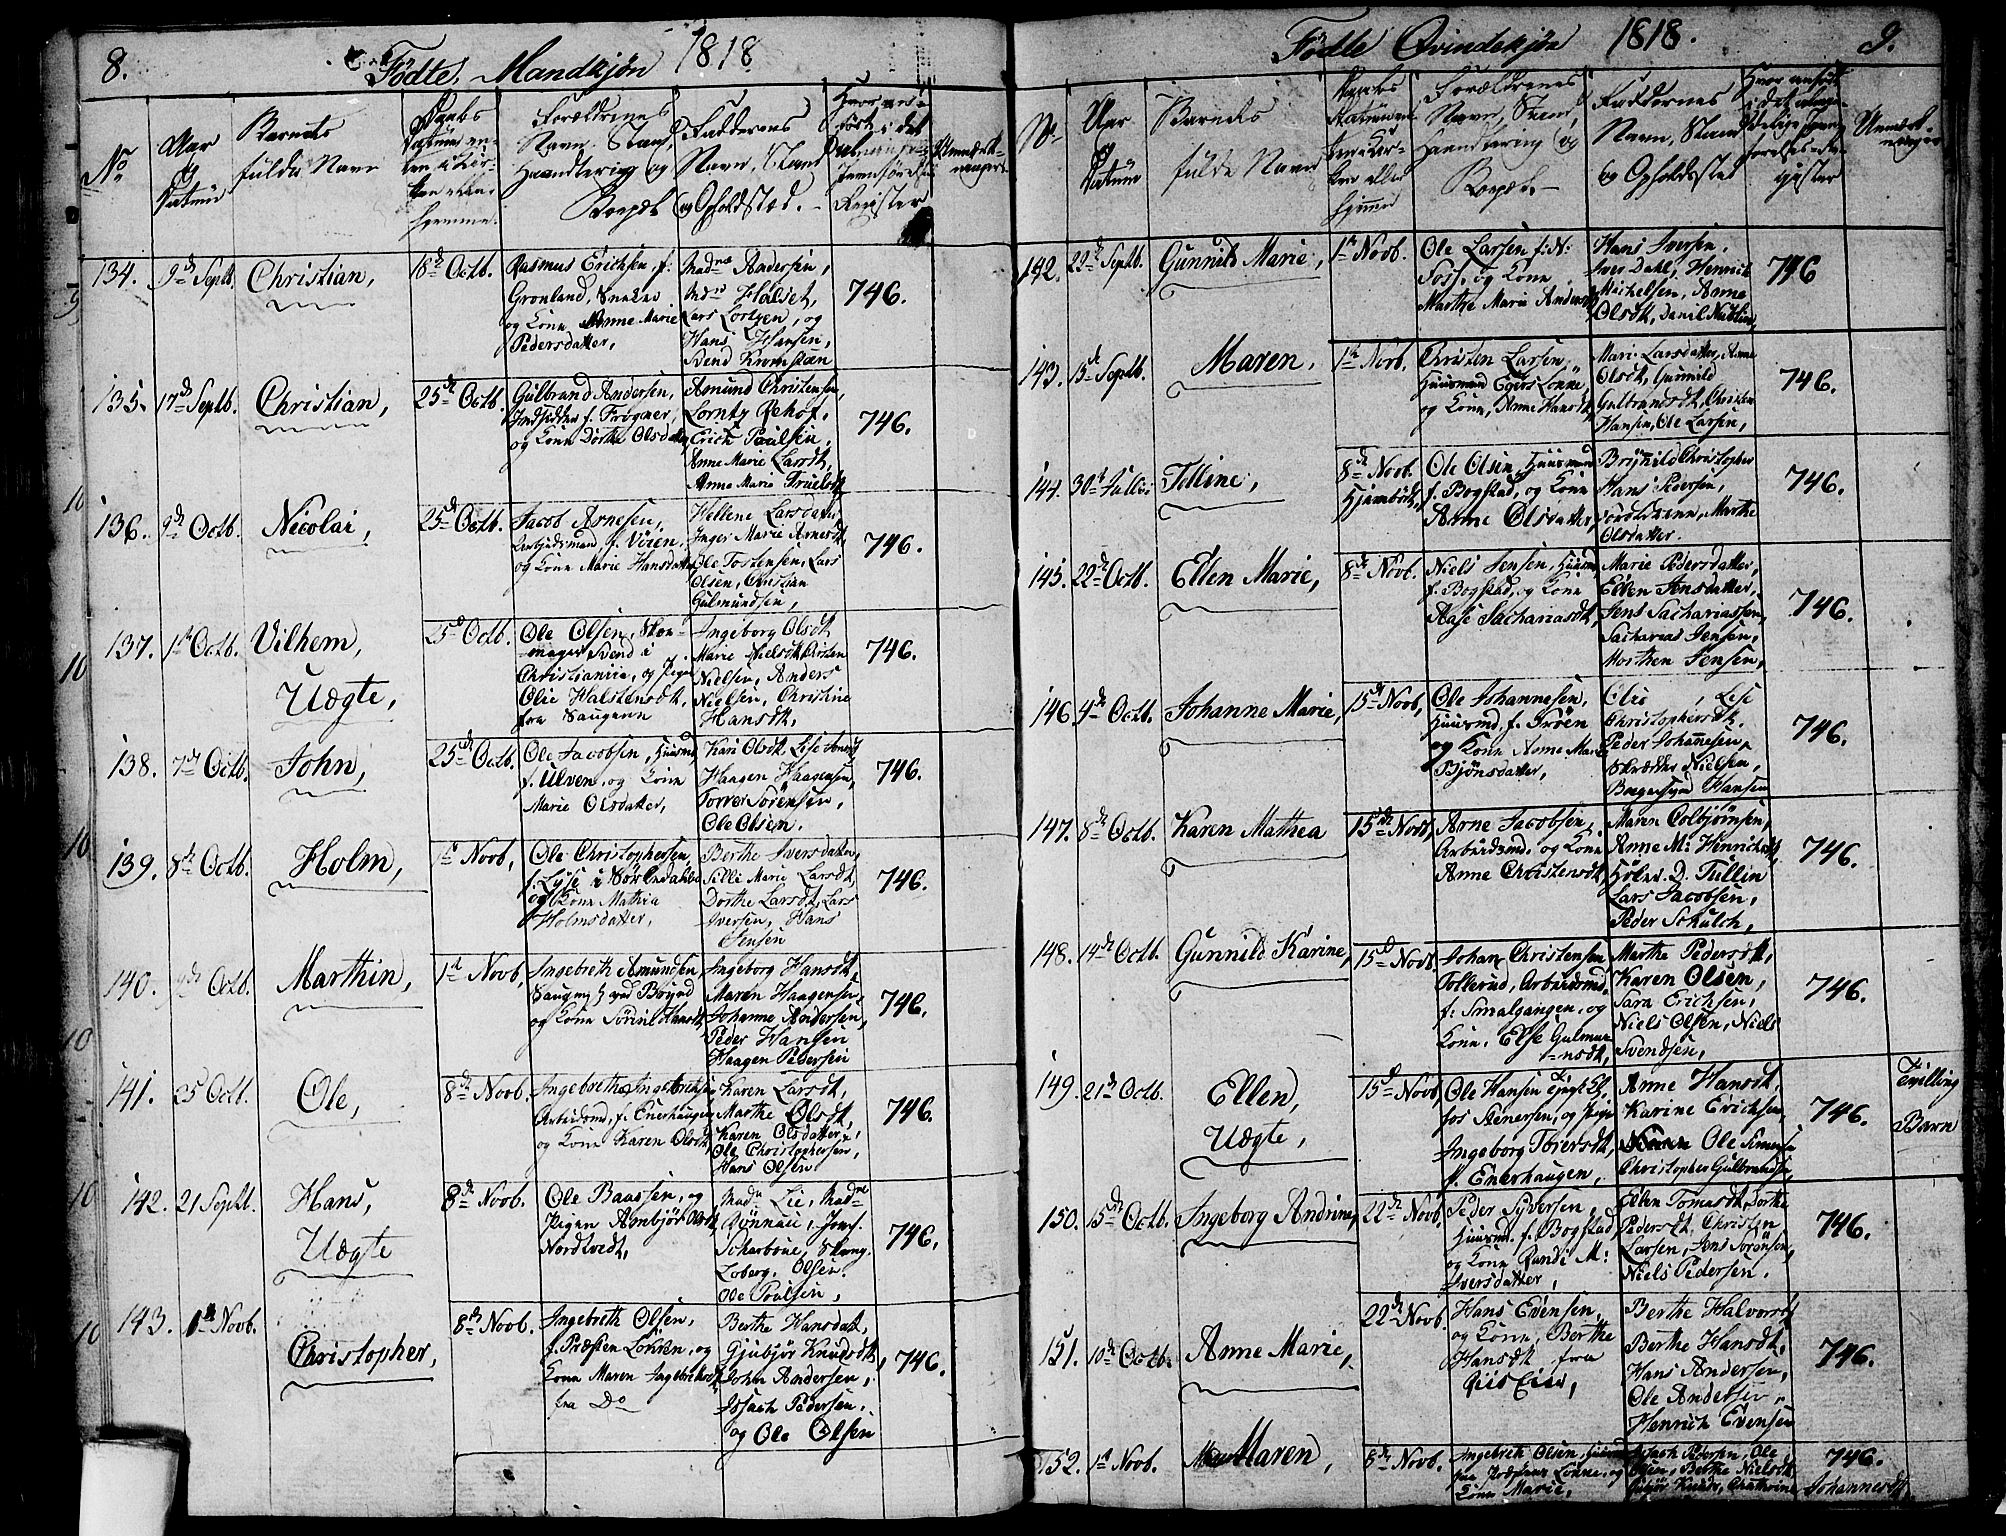 8.
Fødte Mandkjøn 1818
No
Aar og Datum
Barnets fulde Navn
Forældrenes Navn, Stand, Haandtering og Bopæl
Faddernes Navn, Stand og Opholdsted.
134. 9de Septb. Christian, 18de Octb.
Rasmus Erichsen, f:
Grønland, Sneker
og Kone Anne Marie
Pedersdatter,
Madme Andersen,
Mdm Halset,
Lars Lortzen, og
Hans Hansen,
Svend
746.
135. 17de Septb. Christian, 25de Octb.
Gulbrand Andersen,
Indsidder f. Frogner,
og Kone Dorthe Olsdatter
Amund Christensen,
Lorntz Rehof,
Erich Paulsen,
Anne Marie Larsdt,
Anne Marie Truelsdt
746.
136. 9de Octb. Nicolai, 25de Octb.
Jacob Arnesen,
Arbeidsmand, f. Vøien,
og Kone Marie Hansdatter
Hellene Larsdatter
Inger Marie Arnesdt,
Ole Tostensen, Lars
Olsen, Christian
Gulmundsen,
746.
137. 1st Octb. Vilhem, 25de Octb.
Uægte,
Ole Olsen, Skoe-
mager Svend i
Christiania, og Pigen
Olie Halstensdt,
fra Saugene
Ingeborg Olsdt
Marie Nielsdt, Christen
Nielsen, Anders
Nielsen, Christine
Hansdt,
746.
138. 7de Octb. John, 25de Octb.
Ole Jacobsen, Huusmd
f. Ulven, og Kone
Marie Olsdatter,
Kari Olsdt, Lise Jonsdt
Haagen Haagensen,
Torrer Sørensen,
Ole Olsen.
746.
139. 8de Octb. Holm, 1st Novb,
Ole Christophersen,
f. Lyse i Sørkedahlen
og Kone Mathea
Holmsdatter,
Berthe Iversdatter,
Sille Marie Larsdt,
Dorthe Larsdt, Lars
Iversen, Hans
Jensen
746.
140. 9de Octb. Marthin, 1st Novb,
Ingebreth Amundsen,
og Kone Sørine Hansdt,
Ingeborg Hansdt,
Maren Haagensen,
Johanne Andersen,
Peder Hansen
Haagen Pedersen
746.
141. 25 Octb. Ole, 8de Novb.
Ingebreth Ingebrethsen
Arbeidsmd, f. Enerhaugen
og Kone Karen Olsdt,
Karen Larsdt,
Marthe Olsdt,
Karen Olsdatter,
Ole Christophersen,
Hans Olsen
746.
142. 21 Septb. Hans, 8de Novb.
Uægte
Ole Baassen, og
Pigen Arnbjør Olsdt
Nordtvedt,
Madm Lie, Madme
Rønnau, Jomf.
Loberg, Olsen,
Ole Poulsen,
746,
143. 1st Novb. Christopher, 8de Novb.
Ingebreth Olsen,
f. Præsten Løkken, og
Kone Maren Ingebrethsdt
fra Do
Berthe Hansdatt,
Gjubjør Knudsdt,
John Andersen,
Issach Pedersen,
og Ole Olsen
746.
Fødte Qvindekjøn 1818.
9.
No
Aar og Datum
Barnets fulde Navn
Forældrenes Navn, Stand, Haandtering og Bopæl
Faddernes Navn, Stand og Opholdsted
142. 22de Septb. Gunnild Marie, 1st Novb.
Ole Larsen f: N:
Foss, og Kone
Marthe Marie Andersdt
Hans Iversen,
Iver Dahl, Henrik
Michelsen, Anne
Olsdt,
746
143. 15de Septb. Maren, 1st Novb.
Christen Larsen,
Huusmand Egers Løkke
og Kone, Anne Hansdt,
Mari Larsdatter, Anne
Olsdt, Gunnild
Gulbrandsdt, Christen
Hansen, Ole Larsen,
746.
144. 30te Julii Telline, 8de Novb.
Hjemdøbt
Ole Olsen, Huusmand
f. Bogstad, og Kone
Anne Olsdatter,
Brynild Christopher
Hans Pedersen,
Marthe
Olsdatter.
746.
145. 22de Octb. Ellen Marie, 8de Novb.
Niels Jensen, Huusmd
f. Bogstad, og Kone
Aase Sachariasdt,
Marie Pedersdatter,
Ellen Jensdatter,
Jens Sachariassen,
Sacharias Jensen,
Morthen Jensen,
746.
146. 4de Octb. Johanne Marie, 15de Novb,
Ole Johannesen,
Huusmd. f. Frøen
og Kone Anne Marie
Bjønsdatter,
Olia, Lise
Christophersdt,
Peder Johannesen,
Skrædder Nielsen,
Hansen
746.
147. 8de Octb. Karen Mathea 15de Novb,
Arne Jacobsen,
Arbeidsmd. og Kone
Anne Christensdt,
Maren Colbjørnsen,
Anne M: Henrichsdt,
D. Tullin
Lars Jacobsen,
Peder Schulch,
746.
148. 14de Octb. Gunnild Karine, 15de Novb.
Johan Christensen
Tollerud, Arbeidsmd.
f: Smalgangen, og
Kone, Else Gulmun-
nsdt,
Marthe Pedersdt,
Karen Olsen,
Sara Erichsen,
Niels Olsen, Niels
Svendsen,
746.
149. 21de Octb. Ellen, 15de Novb,
Uægte,
Ole Hansen
Stenersen, og Pige
Ingeborg Torersdt,
f. Enerhaugen,
Anne Hansdt,
Karine Erichsen,
Ole Simensen
Christopher Gulbrandsen,
746.
Tvilling
Barn
150. 15de Octb. Ingeborg Andrine, 22de Novb,
Peder Syversen,
Huusmd. f. Bogstad,
og Kone Randi M:
Iversdatter,
Ellen Tomasdt, Dorthe
Pedersdt, Christen
Larsen, Jens Sørensen,
Niels Pedersen.
746.
151. 10de Octb. Anne Marie, 22de Novb.
Hans Evensen,
og Kone, Berthe
Hansdt, fra
Riis Eier,
Berthe Halvorsdt
Berthe Hansdt,
Hans Andersen,
Ole Andersen,
Henrich Evensen
746.
152. 1st Novb. Maren, 8de Novb.
Ingebreth Olsen, Huusmd
fra Præstens Løkke, og
Kone Marie,
Issach Pedersen, Ole
Olsen, Berthe Nielsdt
Gubjør Knudsdt, Chathrine
Johannesdt.
746.